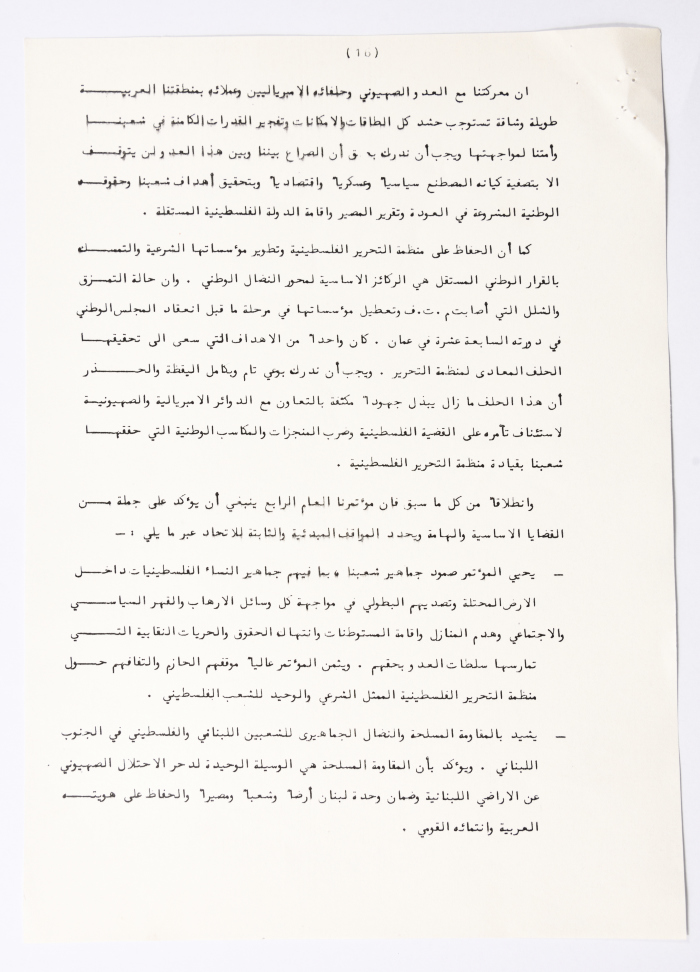 (١٥)
ان معركتنا مع العدو الصهيوني وحلفائه الامبرياليين وعملائه بمنطقتنا العربيـــــــة
طويلة وشاقة تستوجب حشد كل الطاقات والامكانات وتفجير القدرات الكامنة في شعبنـــــا
وأمتنا لمواجهتها ويجب أن ندرك بحق أن الصراع بيننا وبين هذا العدو لن يتوقـــف
الا بتصفية كيانه المصطنع سياسيا وعسكريا واقتصاديا وبتحقيق أهداف شعبنا وحقوقـــه
الوطنية المشروعة في العودة وتقرير المصير واقامة الدولة الفلسطينية المستقلة .
كما أن الحفاظ على منظمة التحرير الفلسطينية وتطوير مؤسساتها الشرعية والتمســـك
بالقرار الوطني المستقل هي الركائز الاساسية لمحور النضال الوطني . وان حالة التمــزق
والشلل التي أصابت م .ت.ف وتعطيل مؤسساتها في مرحلة ما قبل انعقاد المجلس الوطني
في دورته السابعة عشرة في عمان . كان واحدا من الاهداف التي سعى الى تحقيقهـــا
الحلف المعادى لمنظمة التحرير . ويجب أن ندرك بوعي تام وبكامل اليقظة والحـــــذر
أن هذا الحلف ما زال يبذل جهودا مكثفة بالتعاون مع الدوائر الامبريالية والصهيونيـة
لاستئناف تآمره على القضية الفلسطينية وضرب المنجزات والمكاسب الوطنية التي حققهـــا
شعبنا بقيادة منظمة التحرير الفلسطينية .
وانطلاقا من كل ما سبق فان مؤتمرنا العام الرابع ينبغي أن يؤكد على جملة مـــن
القضايا الاساسية والهامة ويحدد المواقف المبدئية والثابتة للاتحاد عبر ما يلي : ـ
ـ يحيي المؤتمر صمود جماهير شعبنا بما فيهم جماهير النساء الفلسطينيات داخـــل
الارض المحتلة وتصديهم البطولي في مواجهة كل وسائل الارهاب والقهر السياســـي
والاجتماعي وهدم المنازل واقامة المستوطنات وانتهاك الحقوق والحريات النقابية التـــــي
تمارسها سلطات العدو بحقهم . ويثمن المؤتمر عاليا موقفهم الحازم والتفافهم حـــول
منظمة التحرير الفلسطينية الممثل الشرعي والوحيد للشعب الفلسطيني .
ـ يشيد بالمقاومة المسلحة والنضال الجماهيرى للشعبين اللبناني والفلسطيني في الجنوب
اللبناني . ويؤكد بأن المقاومة المسلحة هي الوسيلة الوحيدة لدحر الاحتلال الصهيوني
عن الاراضي اللبنانية وضمان وحدة لبنان أرضا وشعبا ومصيرا والحفاظ على هويتـــــه
العربية وانتمائه القومي .